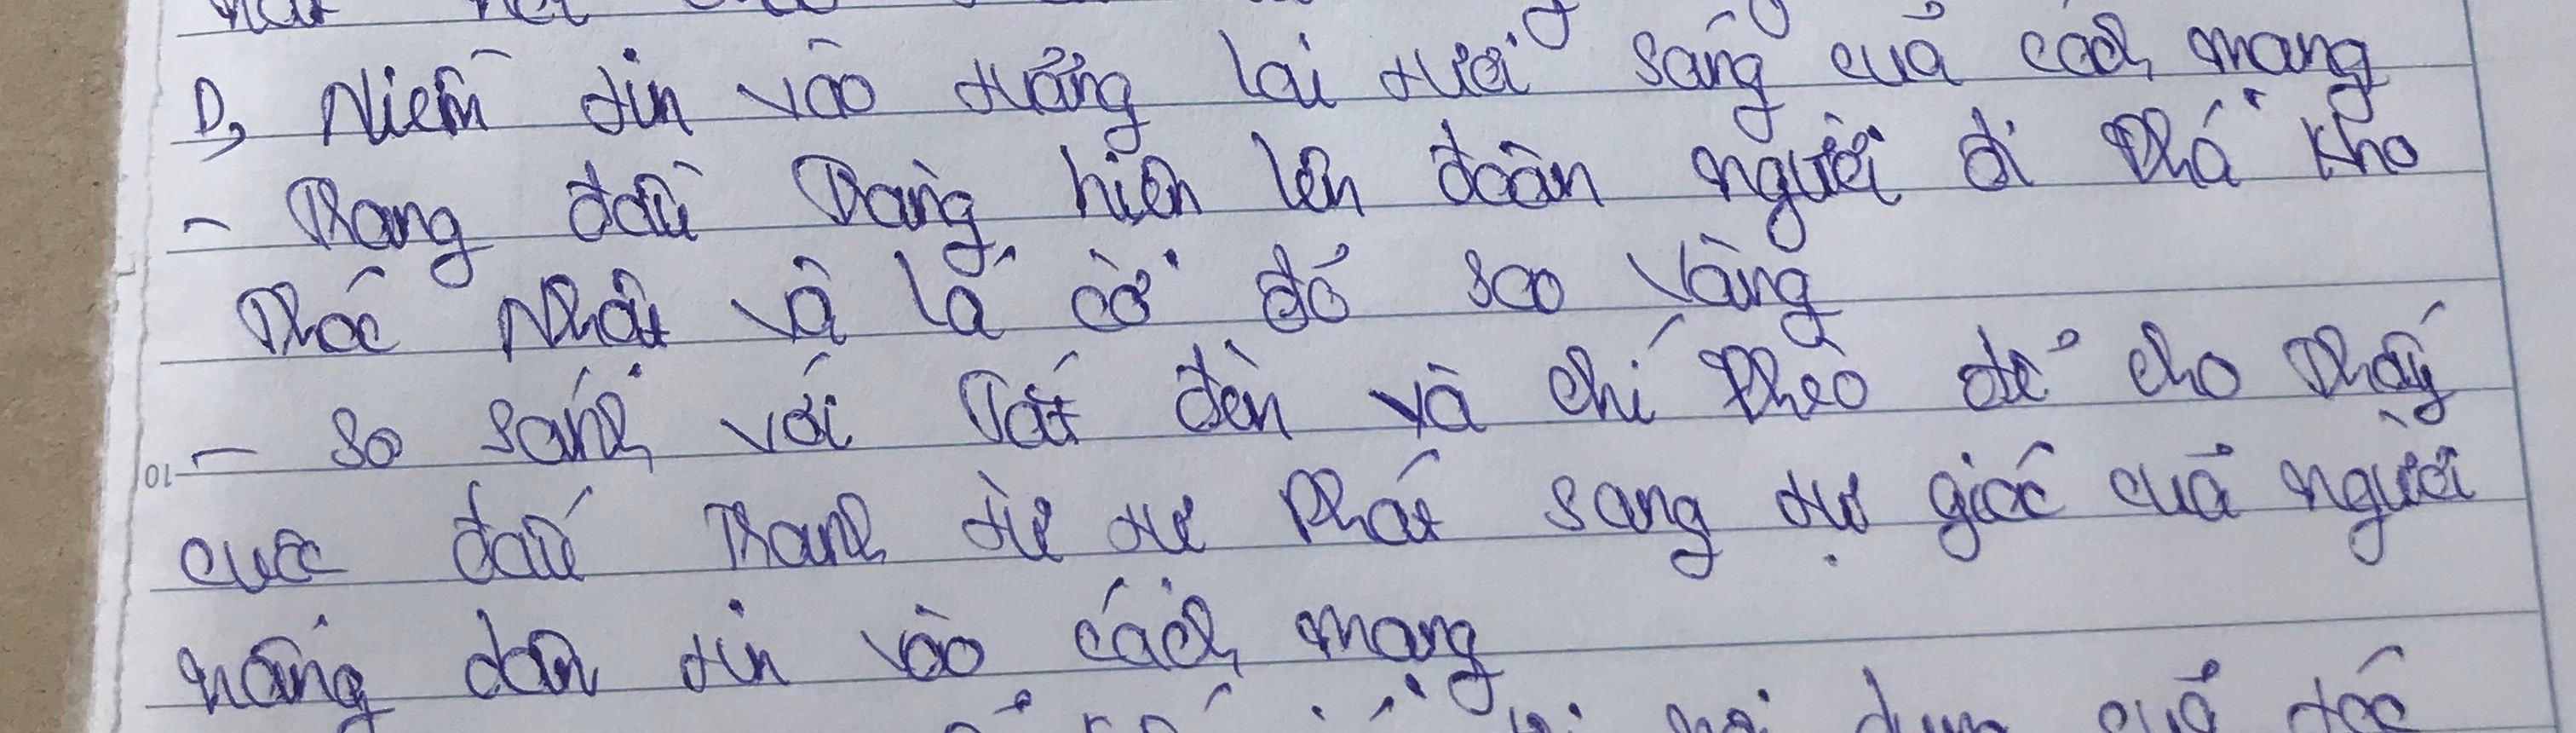 D, Niềm tin vào tương lai tươi sáng của cách mạng
- Trong đầu Tràng hiện lên đoàn người đi phá kho
thóc Nhật và lá cờ đỏ sao vàng
- So sánh với Tắt đèn và Chí Phèo để cho thấy
cuộc đấu tranh từ tự phát sang tự giác của người
nông dân tin vào cách mạng